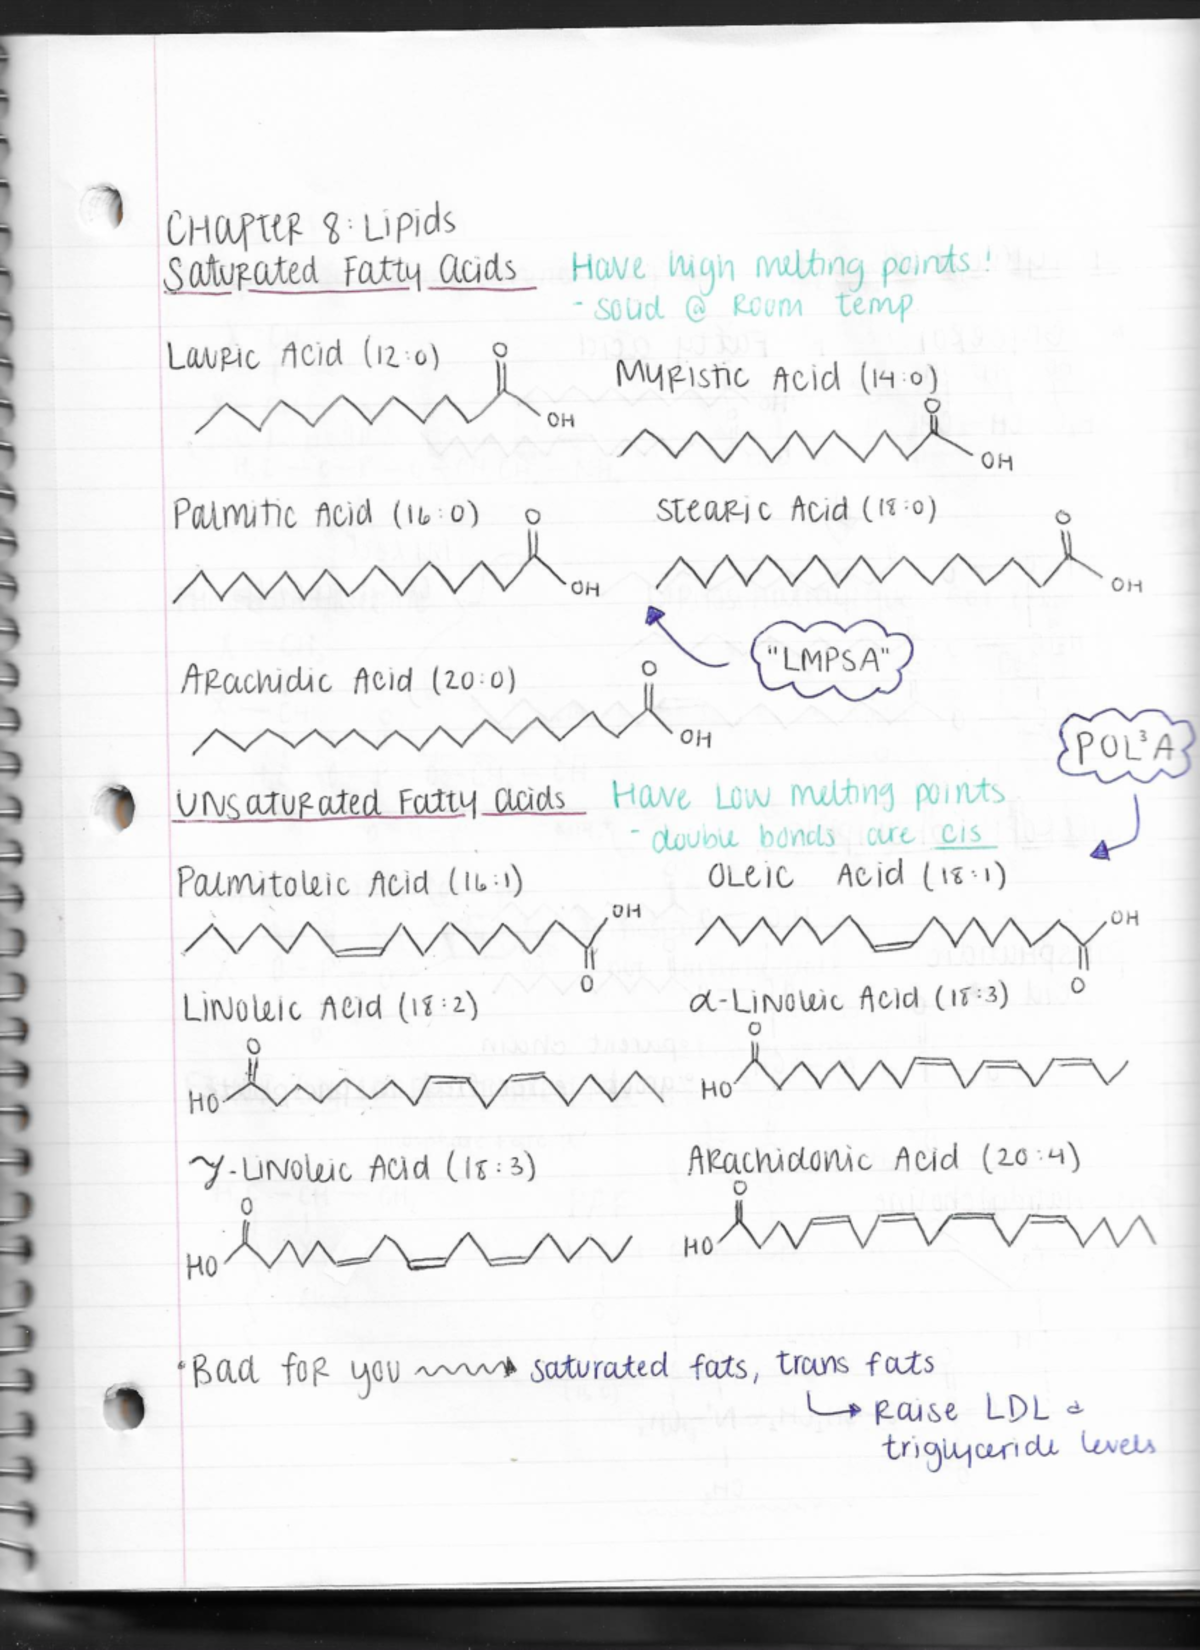 CHAPTER 8: Lipids
Saturated Fatty Acids Have high melting points!
- solid @ Room temp
Lauric Acid (12:0)
Myristic Acid (14:0)
O
OH
O
OH
Palmitic Acid (16:0) Stearic Acid (18:0)
O
OH
O
OH
"LMPSA"
Arachidic Acid (20:0)
O
OH
POL³A
Unsaturated Fatty Acids Have Low melting points
- double bonds are cis
Palmitoleic Acid (16:1) Oleic Acid (18:1)
OH
O
OH
O
Linoleic Acid (18:2) α-Linoleic Acid (18:3)
O
HO
O
HO
γ-Linoleic Acid (18:3) Arachidonic Acid (20:4)
O
HO
O
HO
• Bad for you → saturated fats, trans fats
↳ Raise LDL &
triglyceride levels